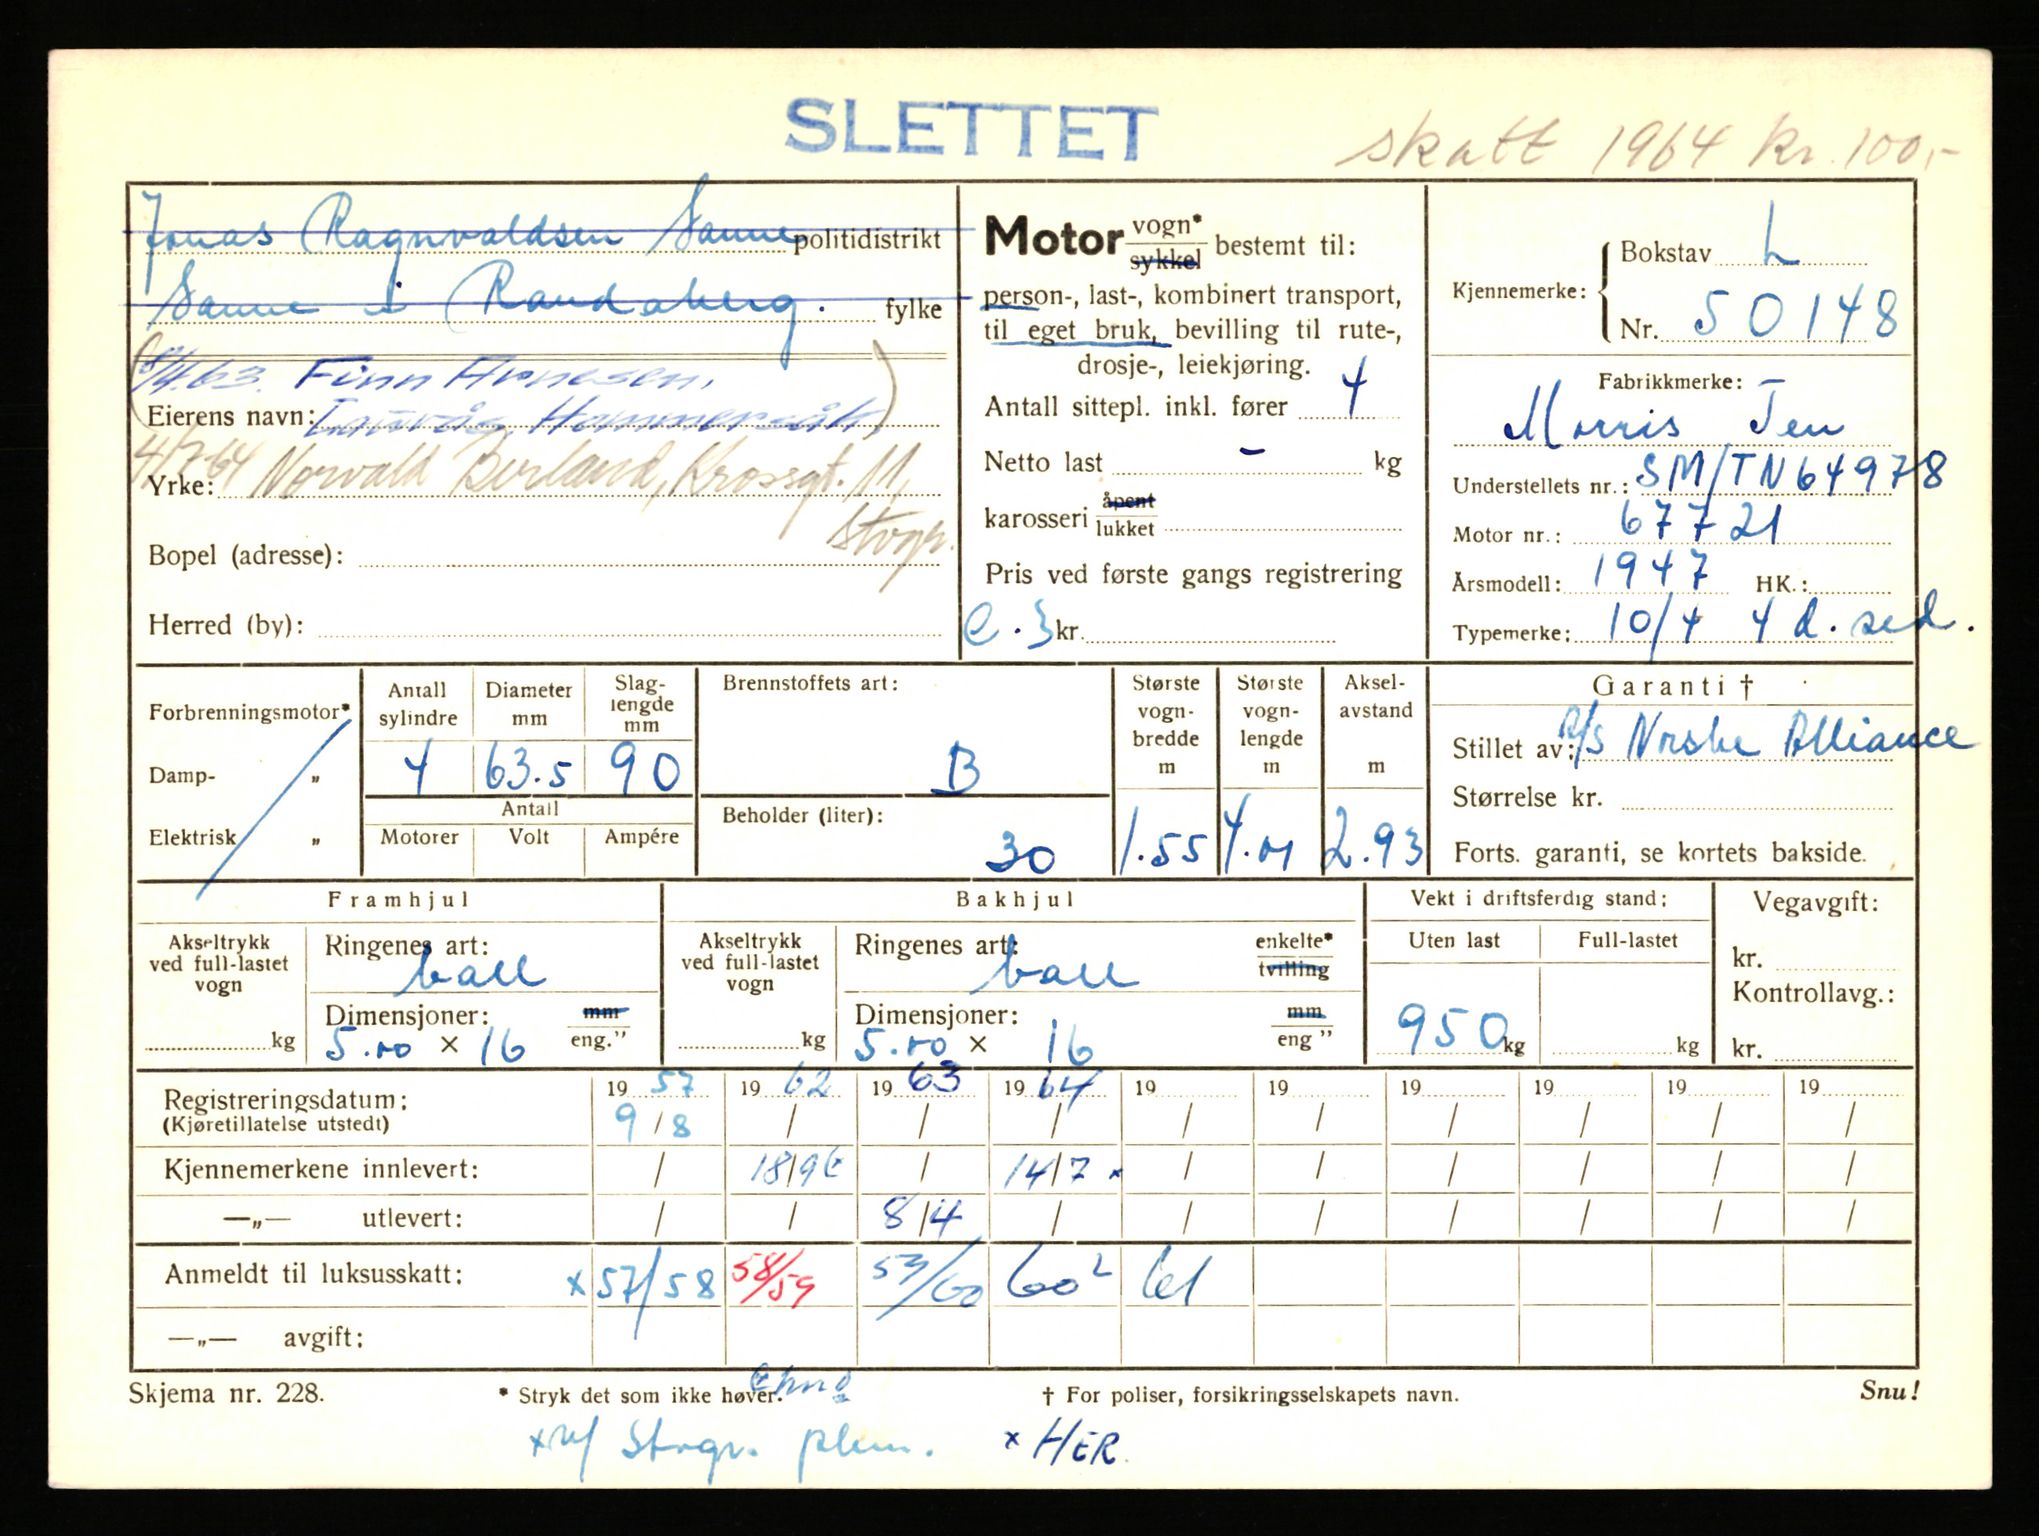 SLETTET
skatt 1964 kr. 100,-
Jonas Ragnvaldsen Sanne politidistrikt
Sanne i Randaberg. fylke
8/4.63. Finn Arnesen,
Eierens navn: Hommersåk
Norvald Berland, Krossgt. 11,
Yrke:
Stvgr.
Bopel (adresse):
Herred (by):
Motor vogn* sykkel bestemt til:
person-, last-, kombinert transport,
til eget bruk, bevilling til rute-,
drosje-, leiekjøring.
Antall sittepl. inkl. fører 4
Netto last - kg
karosseri åpent lukket
Pris ved første gangs registrering
kr.
Kjennemerke: Bokstav L
Nr. 50148
Fabrikkmerke:
Morris Ten
Understellets nr.: SM/TN64978
Motor nr.: 67721
Årsmodell: 1947 HK.:
Typemerke: 10/4 4 d. sed.
Forbrenningsmotor*
Damp- „
Elektrisk „
Antall sylindre 4
Diameter mm 63.5
Slag-lengde mm 90
Antall
Motorer Volt Ampére
Brennstoffets art:
B
Beholder (liter):
30
Største vogn-bredde m 1.55
Største vogn-lengde m
Aksel-avstand m 2.93
Garanti †
Stillet av: A/S Norske Alliance
Størrelse kr.
Forts. garanti, se kortets bakside.
Framhjul
Akseltrykk ved full-lastet vogn
kg
Ringenes art:
ball
Dimensjoner: mm eng."
5.00 × 16
Bakhjul
Akseltrykk ved full-lastet vogn
kg
Ringenes art: enkelte* tvilling
ball
Dimensjoner: mm eng"
5.00 × 16
Vekt i driftsferdig stand:
Uten last Full-lastet
950 kg kg
Vegavgift:
kr.
Kontrollavg.:
kr.
Registreringsdatum: 19 57 19 62 19 63 19 64 19 19 19 19 19 19
(Kjøretillatelse utstedt) 9/8 / / / / / / / / /
Kjennemerkene innlevert: / 18/9 / 14/7 × / / / / / /
—„— utlevert: / / 8/4 / / / / / / /
Anmeldt til luksusskatt: × 57/58 58/59 59/60 60² 61
—„— avgift:
Skjema nr. 228. * Stryk det som ikke høver. † For poliser, forsikringsselskapets navn. Snu!
Stvgr. × HER.